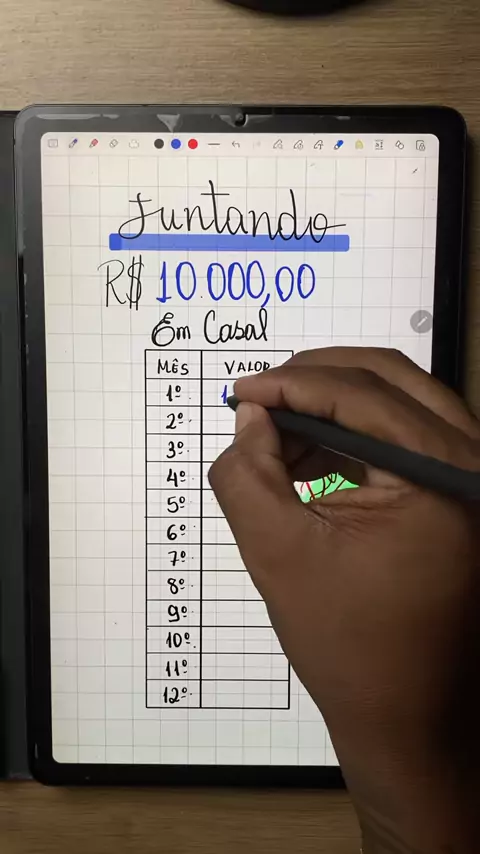 Juntando
R$ 10.000,00
Em Casal
MÊS VALOR
1º 1
2º
3º
4º
5º
6º
7º
8º
9º
10º
11º
12º